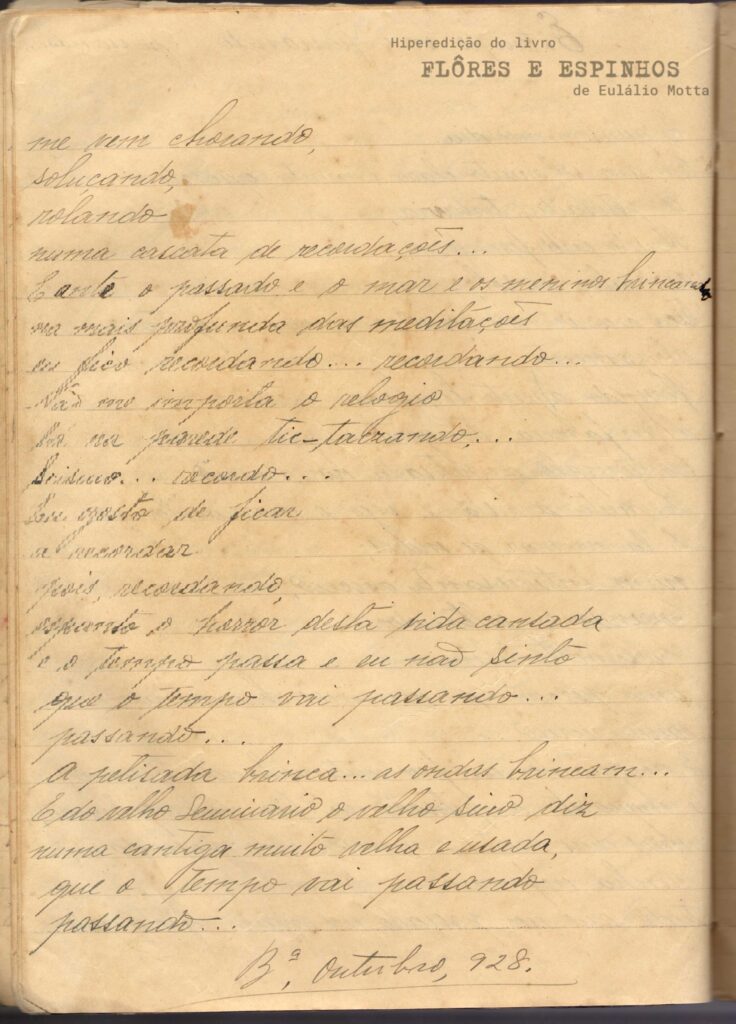 Hiperedição do livro
FLÔRES E ESPINHOS
de Eulálio Motta
me vem chorando,
soluçando,
rolando
numa cascata de recordações...
E ante o passado e o mar e os meninos brincando
na mais profunda das meditações
eu fico recordando... recordando...
Não me importa o relogio
lá na parede tic-tacando,...
Scismo... recordo...
Eu gosto de ficar
a recordar
pois, recordando,
espanto o horror desta vida cansada
e o tempo passa e eu não sinto
que o tempo vai passando...
passando...
A petisada brinca... as ondas brincam...
E do velho Seminario o velho sino diz
numa cantiga muito velha e usada,
que o tempo vai passando
passando...
Bª, Outubro, 928.